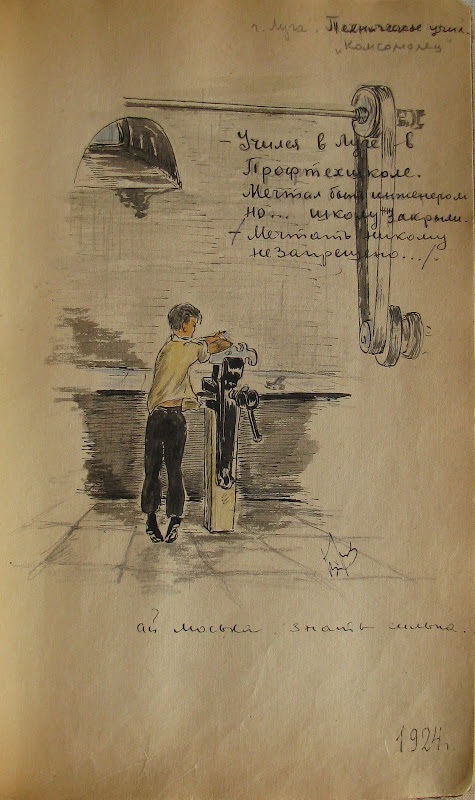 г. Луга. Техническое учил.
"Комсомолец"
– Учился в Луге – в
Профтехшколе.
Мечтал быть инженером
но... школу закрыли.
– Мечтать никому
не запрещено...
ай моська знать сильна.
1924г.